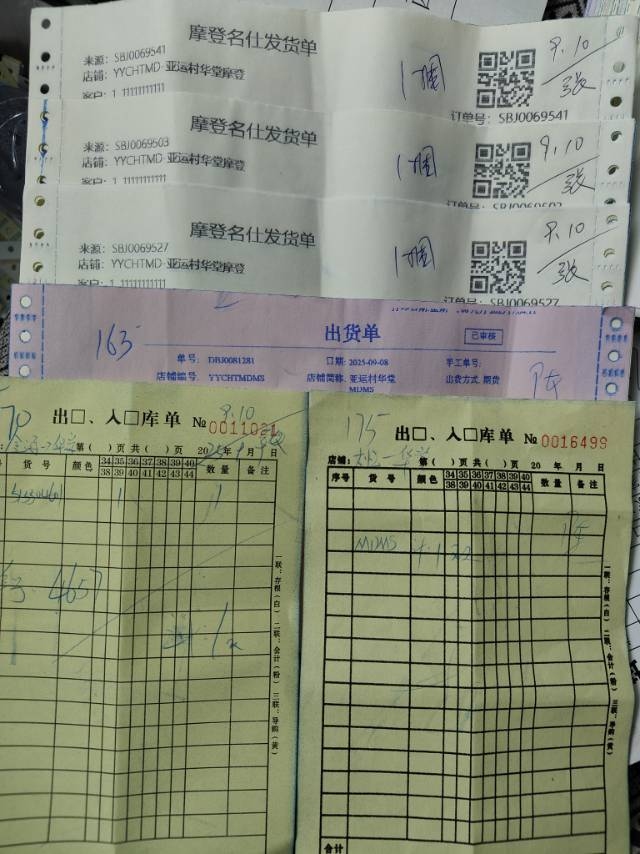 摩登名仕发货单
来源：SBJ0069541
店铺：YYCHTMD-亚运村华堂摩登
客户：1 11111111111
1个
9.10
张
订单号：SBJ0069541
摩登名仕发货单
来源：SBJ0069503
店铺：YYCHTMD-亚运村华堂摩登
客户：1 11111111111
1个
9.10
张
订单号：SBJ0069503
摩登名仕发货单
来源：SBJ0069527
店铺：YYCHTMD-亚运村华堂摩登
客户：1 11111111111
1个
9.10
张
订单号：SBJ0069527
163
出货单
已审核
单号：DBJ0081281
日期：2025-09-08
手工单号：
店铺编号：YYCHTMDMS
店铺简称：亚运村华堂
MDMS
出货方式：期货
70
9.10
出□、入□库单 №0011021
第（ ）页共（ ）页 20 年 月 日
货号 颜色 34 35 36 37 38 39 40 数量 备注
38 39 40 41 42 43 44
1 1
4657
一联：存根（白） 二联：会计（粉） 三联：导购（黄）
175
出□、入□库单 №0016499
店铺： 第（ ）页共（ ）页 20 年 月 日
序号 货号 颜色 34 35 36 37 38 39 40 数量 备注
38 39 40 41 42 43 44
MDMS
一联：存根（白） 二联：会计（粉） 三联：导购（黄）
合计